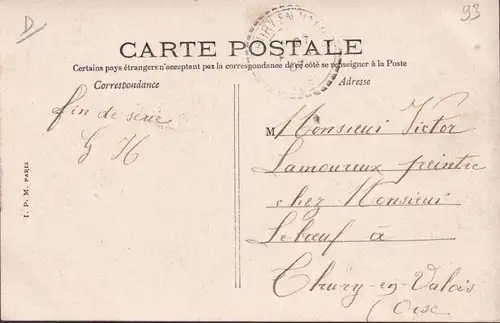 D
93
CARTE POSTALE
Certains pays étrangers n'acceptant pas la correspondance de ce côté se renseigner à la Poste
Correspondance
Adresse
fin de série
G H
M Monsieur Victor
Lamoureux peintre
chez Monsieur
Lebœuf à
Thury-en-Valois
(Oise
I. P. M. PARIS